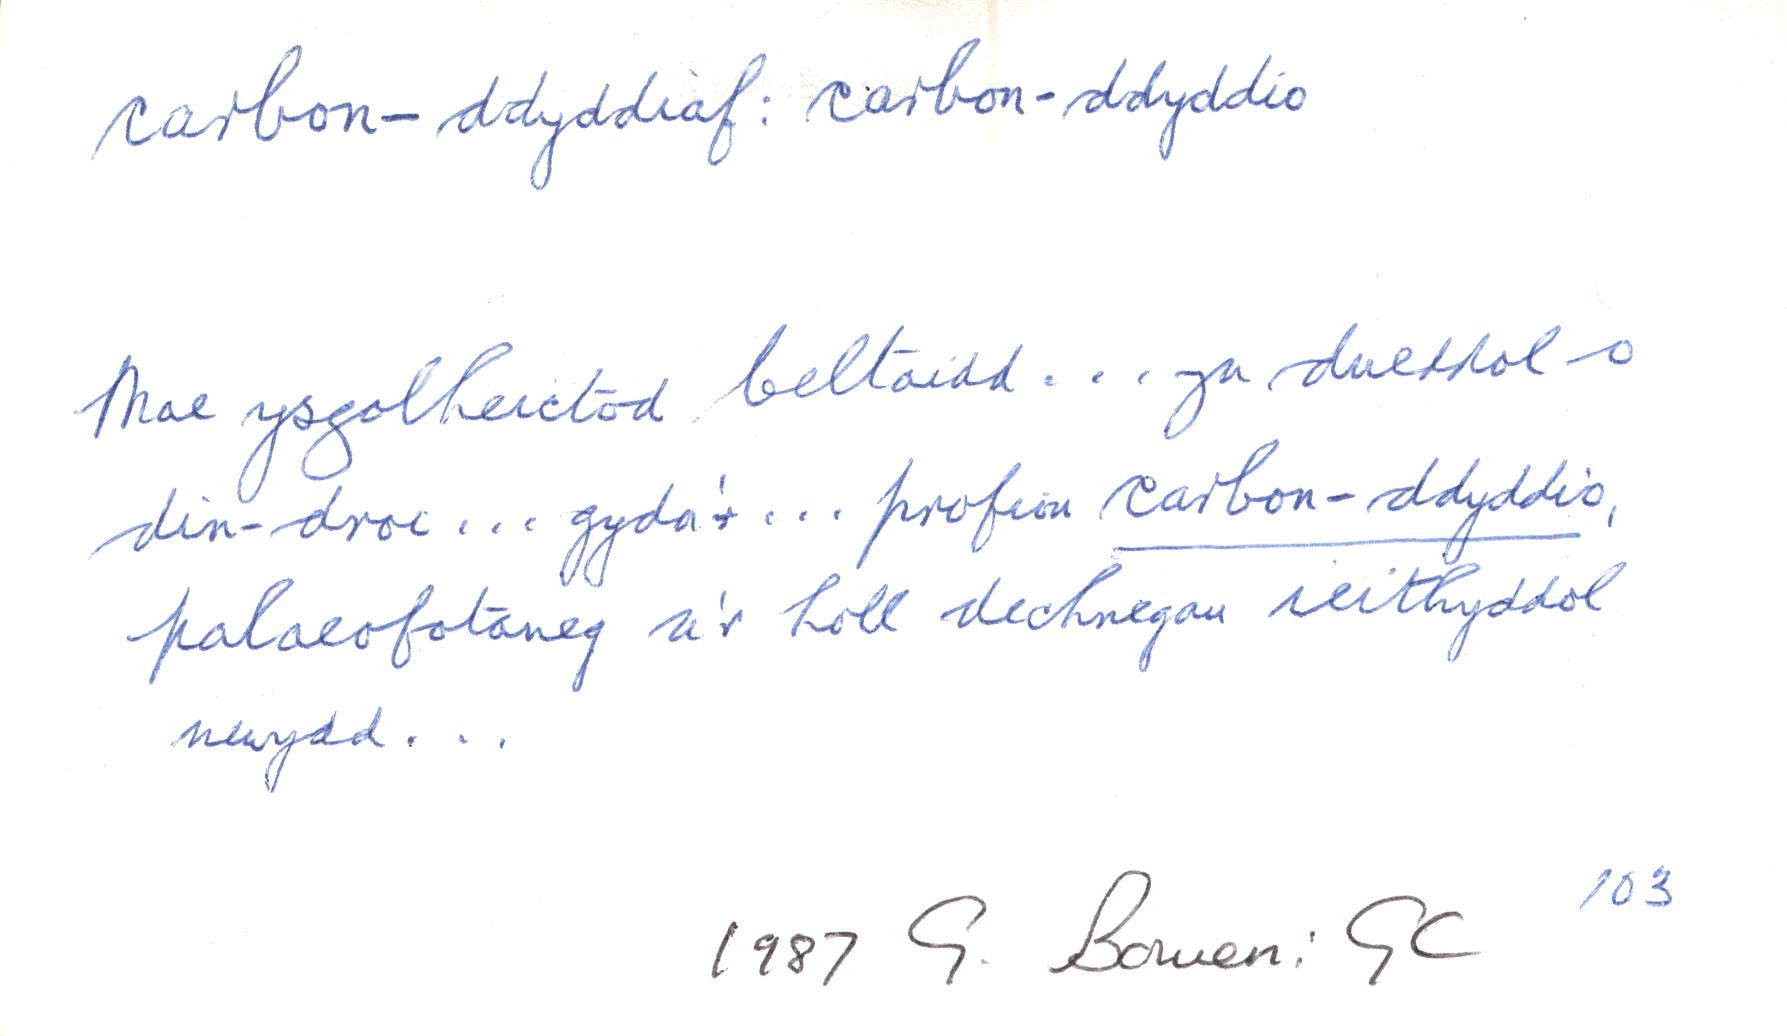 carbon-ddyddiaf: carbon-ddyddio
Mae ysgolheictod Celtaidd... yn dueddol o
din-droi... gyda'r... profion carbon-ddyddio,
palaeofotaneg a'r holl dechnegau ieithyddol
newydd...
103
1987 G. Bowen: GC